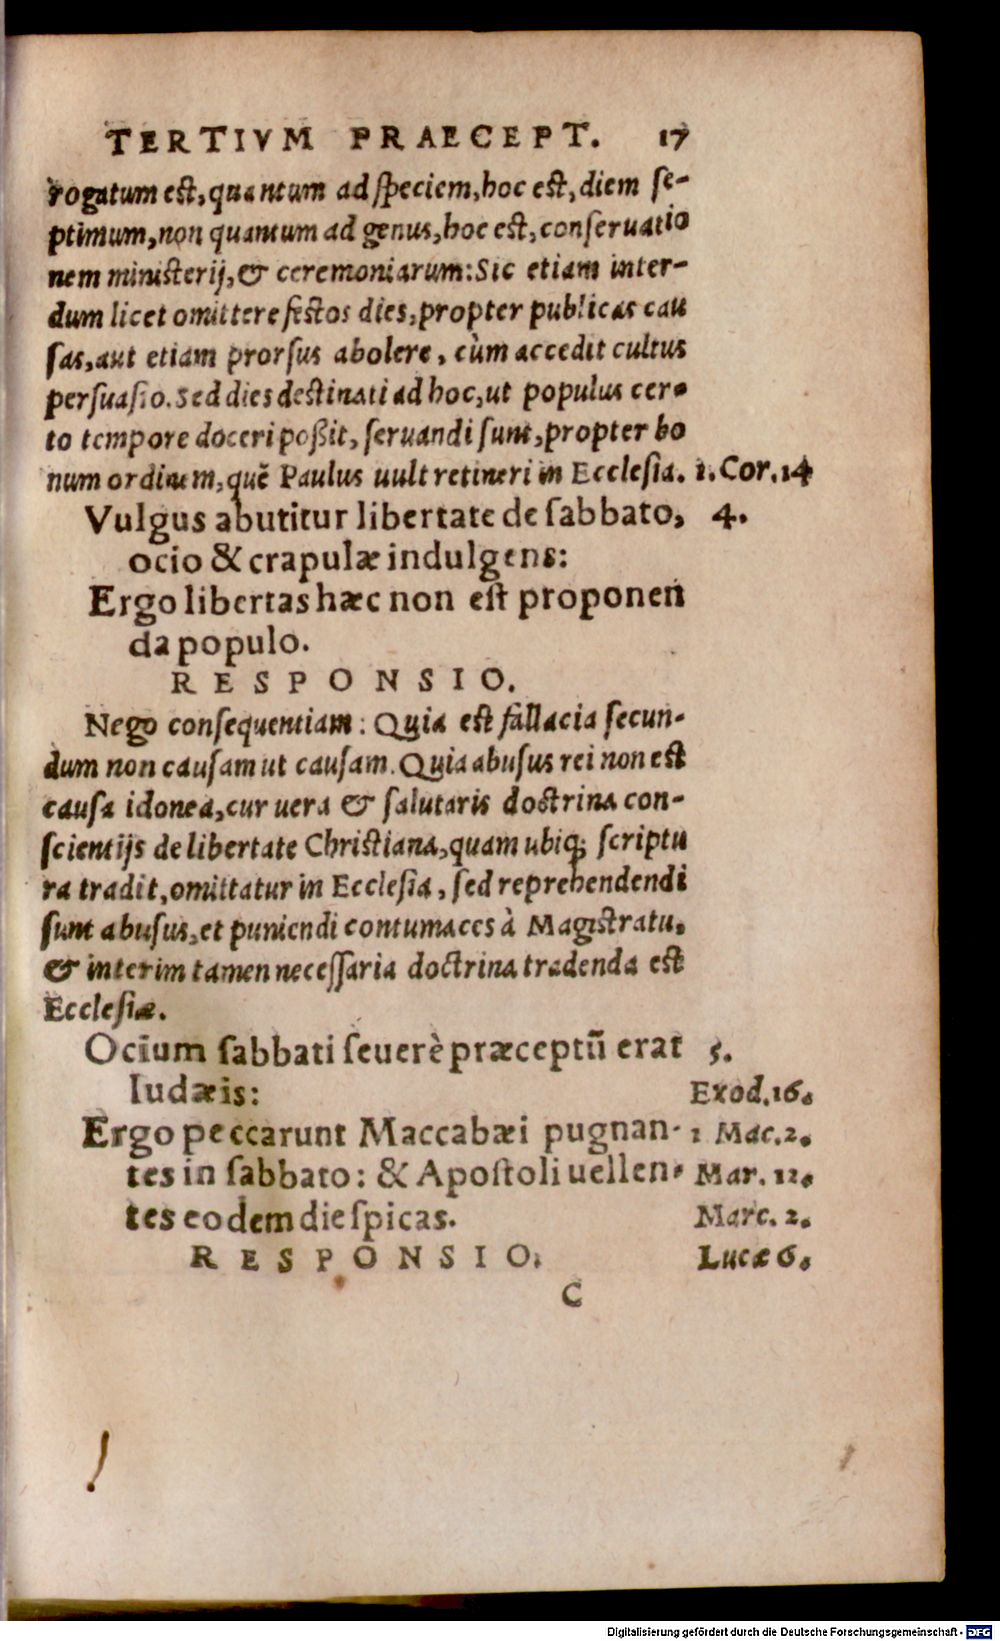 TERTIVM PRAECEPT. 17
rogatum est, quantum ad speciem, hoc est, diem se-
ptimum, non quantum ad genus, hoc est, conseruatio
nem ministerij, & ceremoniarum: Sic etiam inter-
dum licet omittere festos dies, propter publicas cau
sas, aut etiam prorsus abolere, cùm accedit cultus
persuasio. Sed dies destinati ad hoc, ut populus cer-
to tempore doceri poßit, seruandi sunt, propter bo
num ordinem, quẽ Paulus uult retineri in Ecclesia. 1. Cor. 14
Vulgus abutitur libertate de sabbato, 4.
ocio & crapulæ indulgens:
Ergo libertas hæc non est proponen
da populo.
RESPONSIO.
Nego consequentiam: Quia est fallacia secun-
dum non causam ut causam. Quia abusus rei non est
causa idonea, cur uera & salutaris doctrina con-
scientijs de libertate Christiana, quam ubiq; scriptu
ra tradit, omittatur in Ecclesia, sed reprehendendi
sunt abusus, et puniendi contumaces à Magistratu,
& interim tamen necessaria doctrina tradenda est
Ecclesiæ.
Ocium sabbati seuerè præceptũ erat 5.
Iudæis: Exod. 16.
Ergo peccarunt Maccabæi pugnan- 1 Mac. 2.
tes in sabbato: & Apostoli uellen- Mar. 12.
tes eodem die spicas. Marc. 2.
RESPONSIO. Lucæ 6.
C
Digitalisierung gefördert durch die Deutsche Forschungsgemeinschaft - DFG